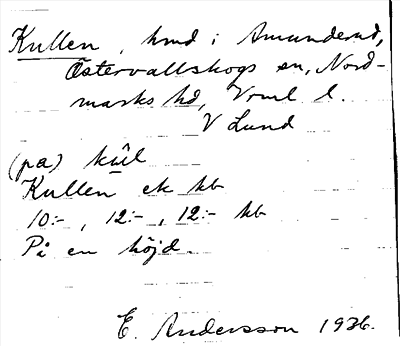 Kullen, hmd i Amunderud,
Östervallskogs sn, Nord-
marks hd, Vrml l.
V Lund
(pa) kûl
Kullen ek kb
10:-, 12:-, 12:- kb
På en höjd.
E. Andersson 1936.